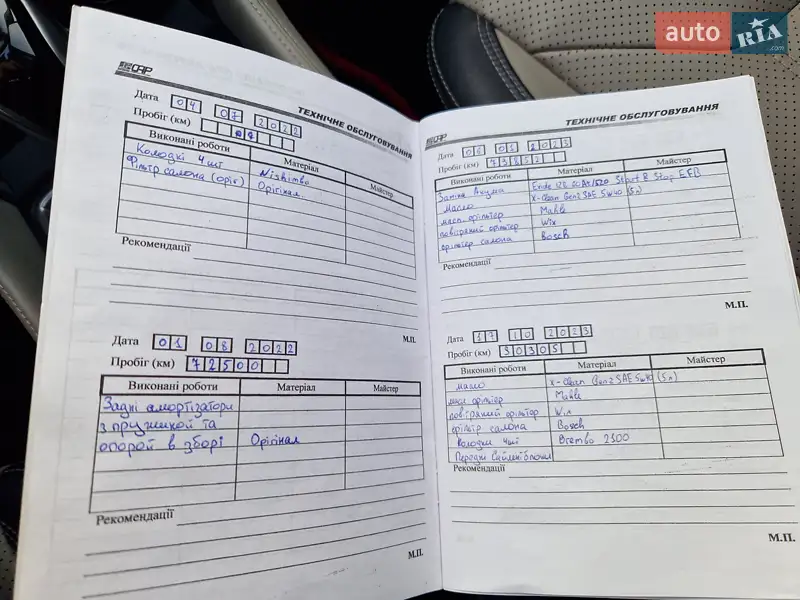 auto RIA .com
ТЕХНІЧНЕ ОБСЛУГОВУВАННЯ
Дата 04 07 2022
Пробіг (км)
Виконані роботи Матеріал Майстер
Колодкі 4 шт Nishimbo
Фільтр салона (ориг) Орігінал
Рекомендації
М.П.
Дата 01 08 2022
Пробіг (км) 72500
Виконані роботи Матеріал Майстер
Задні амортізатори
з пружинкой та
опорой в зборі Орігінал
Рекомендації
М.П.
ТЕХНІЧНЕ ОБСЛУГОВУВАННЯ
Дата 01 2023
Пробіг (км) 73852
Виконані роботи Матеріал Майстер
Заміна Акума Exide Start & Stop EFB
Масло X-Clean Gen2 SAE 5W40 (5л)
масл фільтер Mahle
повітряний фільтер Wix
фільтер салона Bosch
Рекомендації
М.П.
Дата 17 10 2023
Пробіг (км) 90305
Виконані роботи Матеріал Майстер
масло X-Clean Gen2 SAE 5W40 (5л)
масл фільтер Mahle
повітряний фільтер Wix
фільтр салона Bosch
колодки 4шт Brembo
Передні Сайлентблоки
Рекомендації
М.П.